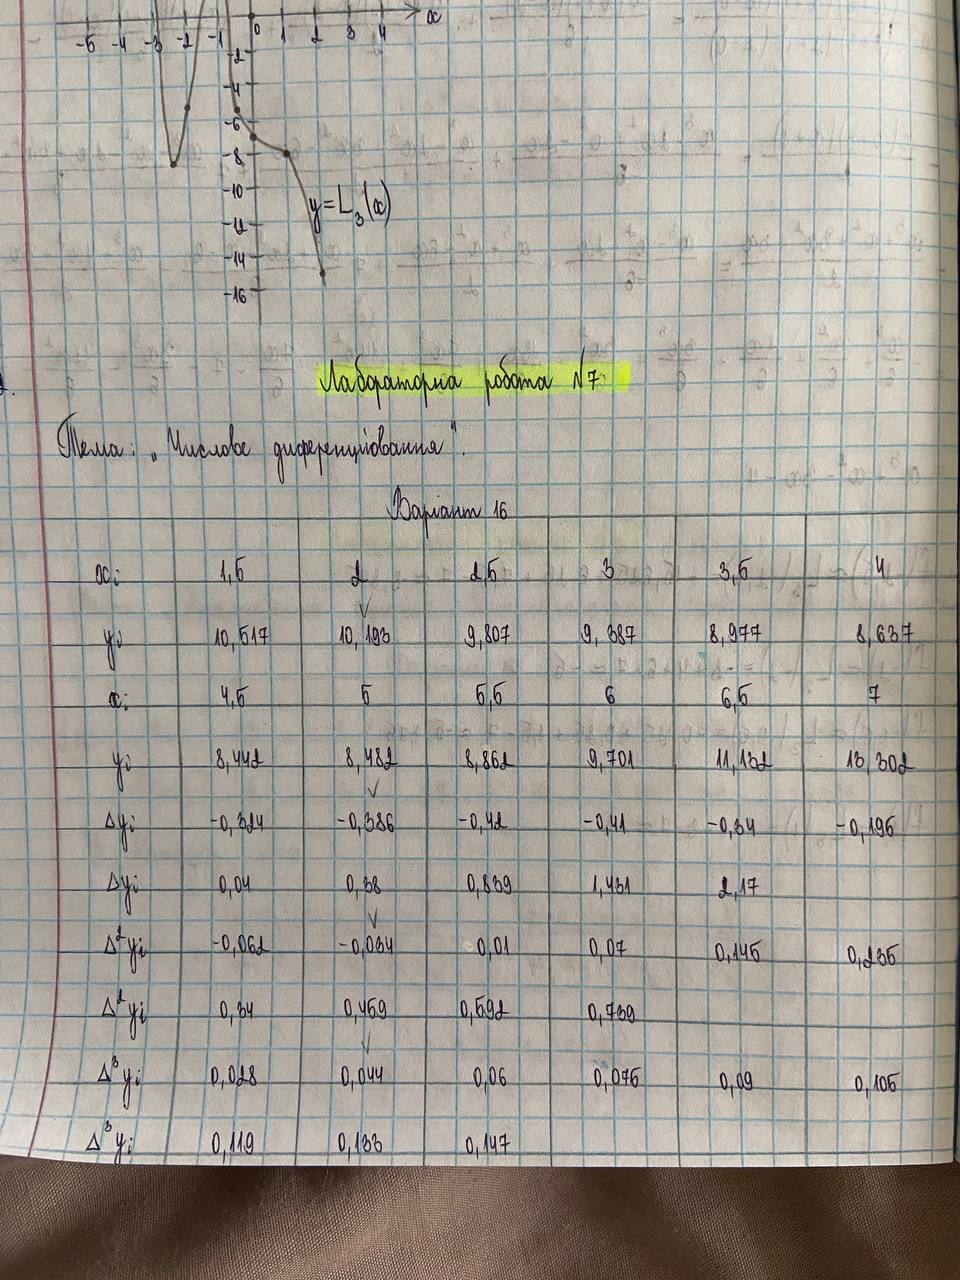 x
-5 -4 -3 -2 -1 0 1 2 3 4
-2
-4
-6
-8
-10
y=L₃(x)
-12
-14
-16
Лабораторна робота №7
Тема: „Числове диференціювання".
Варіант 16
xᵢ 1,5 2 2,5 3 3,5 4
yᵢ 10,517 10,193 9,807 9,387 8,977 8,637
xᵢ 4,5 5 5,5 6 6,5 7
yᵢ 8,442 8,482 8,862 9,701 11,132 13,302
Δyᵢ -0,324 -0,386 -0,42 -0,41 -0,34 -0,195
Δyᵢ 0,04 0,38 0,839 1,431 2,17
Δ²yᵢ -0,062 -0,034 0,01 0,07 0,145 0,235
Δ²yᵢ 0,34 0,459 0,592 0,739
Δ³yᵢ 0,028 0,044 0,06 0,075 0,09 0,105
Δ³yᵢ 0,119 0,133 0,147